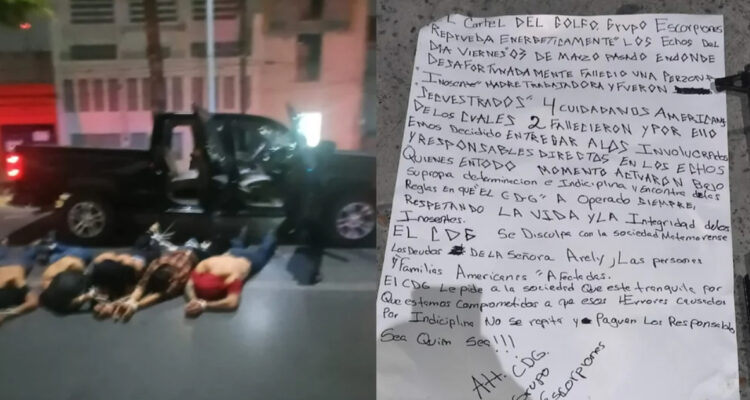 L CARTEL DEL GOLFO. GRUPO Escorpiones
REPRUEBA ENERGETICAMENTE" LOS Echos DEL
DIA VIERNES" 03 DE MARZO PASADO ENDONDE
DESAFORTUNADAMENTE FALLECIO UNA PERZONA
"INOSENTE" MADRE TRABAJADORA Y FUERON
SECUESTRADOS" 4 CUIDADANOS AMERICANS
DE LOS CUALES 2 FALLECIERON Y POR ELLO
EMOS DECIDIDO ENTREGAR ALOS INVOLUCRADOS
Y RESPONSABLES DIRECTOS EN LOS ECHOS
QUIENES ENTODO MOMENTO ACTUARON BAJO
SuPropia determinacion e Indiciplina y Encontra de las
Reglas en que" EL CDG" A Operado SIEMPRE,
RESPETANDO LA VIDA Y LA Integridad de los
Inosentes.
EL CDG Se Disculpa con la sociedad Matamorense
Los Deudos DE LA Señora Arely, Las personas
y Familias Americanes "Afectadas.
El CDG Le pide a la sociedad Que este tranquila por
Que estamos Comprometidos a que esos "Errores causados
Por Indiciplina No se repita y Paguen Los Responsables
Sea Quim Sea!!!
Att. CDG.
Grupo
Escorpiones